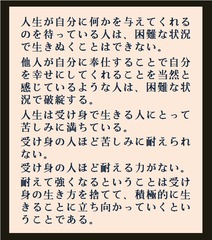 人生が自分に何かを与えてくれる
のを待っている人は、困難な状況
で生きぬくことはできない。
他人が自分に奉仕することで自分
を幸せにしてくれることを当然と
感じているような人は、困難な状
況で破綻する。
人生は受け身で生きる人にとって
苦しみに満ちている。
受け身の人ほど苦しみに耐えられ
ない。
受け身の人ほど耐える力がない。
耐えて強くなるということは受け
身の生き方を捨てて、積極的に生
きることに立ち向かっていくとい
うことである。